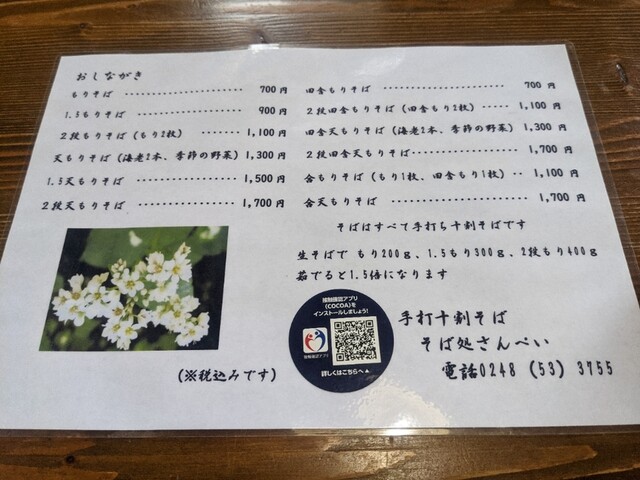 おしながき
もりそば ・・・・・・・・・・・・・・・・・・ 700 円
1.5もりそば ・・・・・・・・・・・・・・・ 900 円
2段もりそば (もり2枚) ・・・・・・・ 1,100 円
天もりそば (海老2本、季節の野菜) 1,300 円
1.5天もりそば ・・・・・・・・・・・・・ 1,500 円
2段天もりそば ・・・・・・・・・・・・・ 1,700 円
田舎もりそば ・・・・・・・・・・・・・・・・・・ 700 円
2段田舎もりそば (田舎もり2枚) ・・・・・ 1,100 円
田舎天もりそば (海老2本、季節の野菜) 1,300 円
2段田舎天もりそば・・・・・・・・・・・・・・ 1,700 円
合もりそば (もり1枚、田舎もり1枚) ・・ 1,100 円
合天もりそば ・・・・・・・・・・・・・・・・・・ 1,700 円
そばはすべて手打ち十割そばです
生そばで もり200g、1.5もり300g、2段もり400g
茹でると1.5倍になります
接触確認アプリ
(COCOA)を
インストールしましょう!
接触確認アプリ
詳しくはこちらへ▲
手打十割そば
そば処さんぺい
電話0248 (53) 3755
(※税込みです)